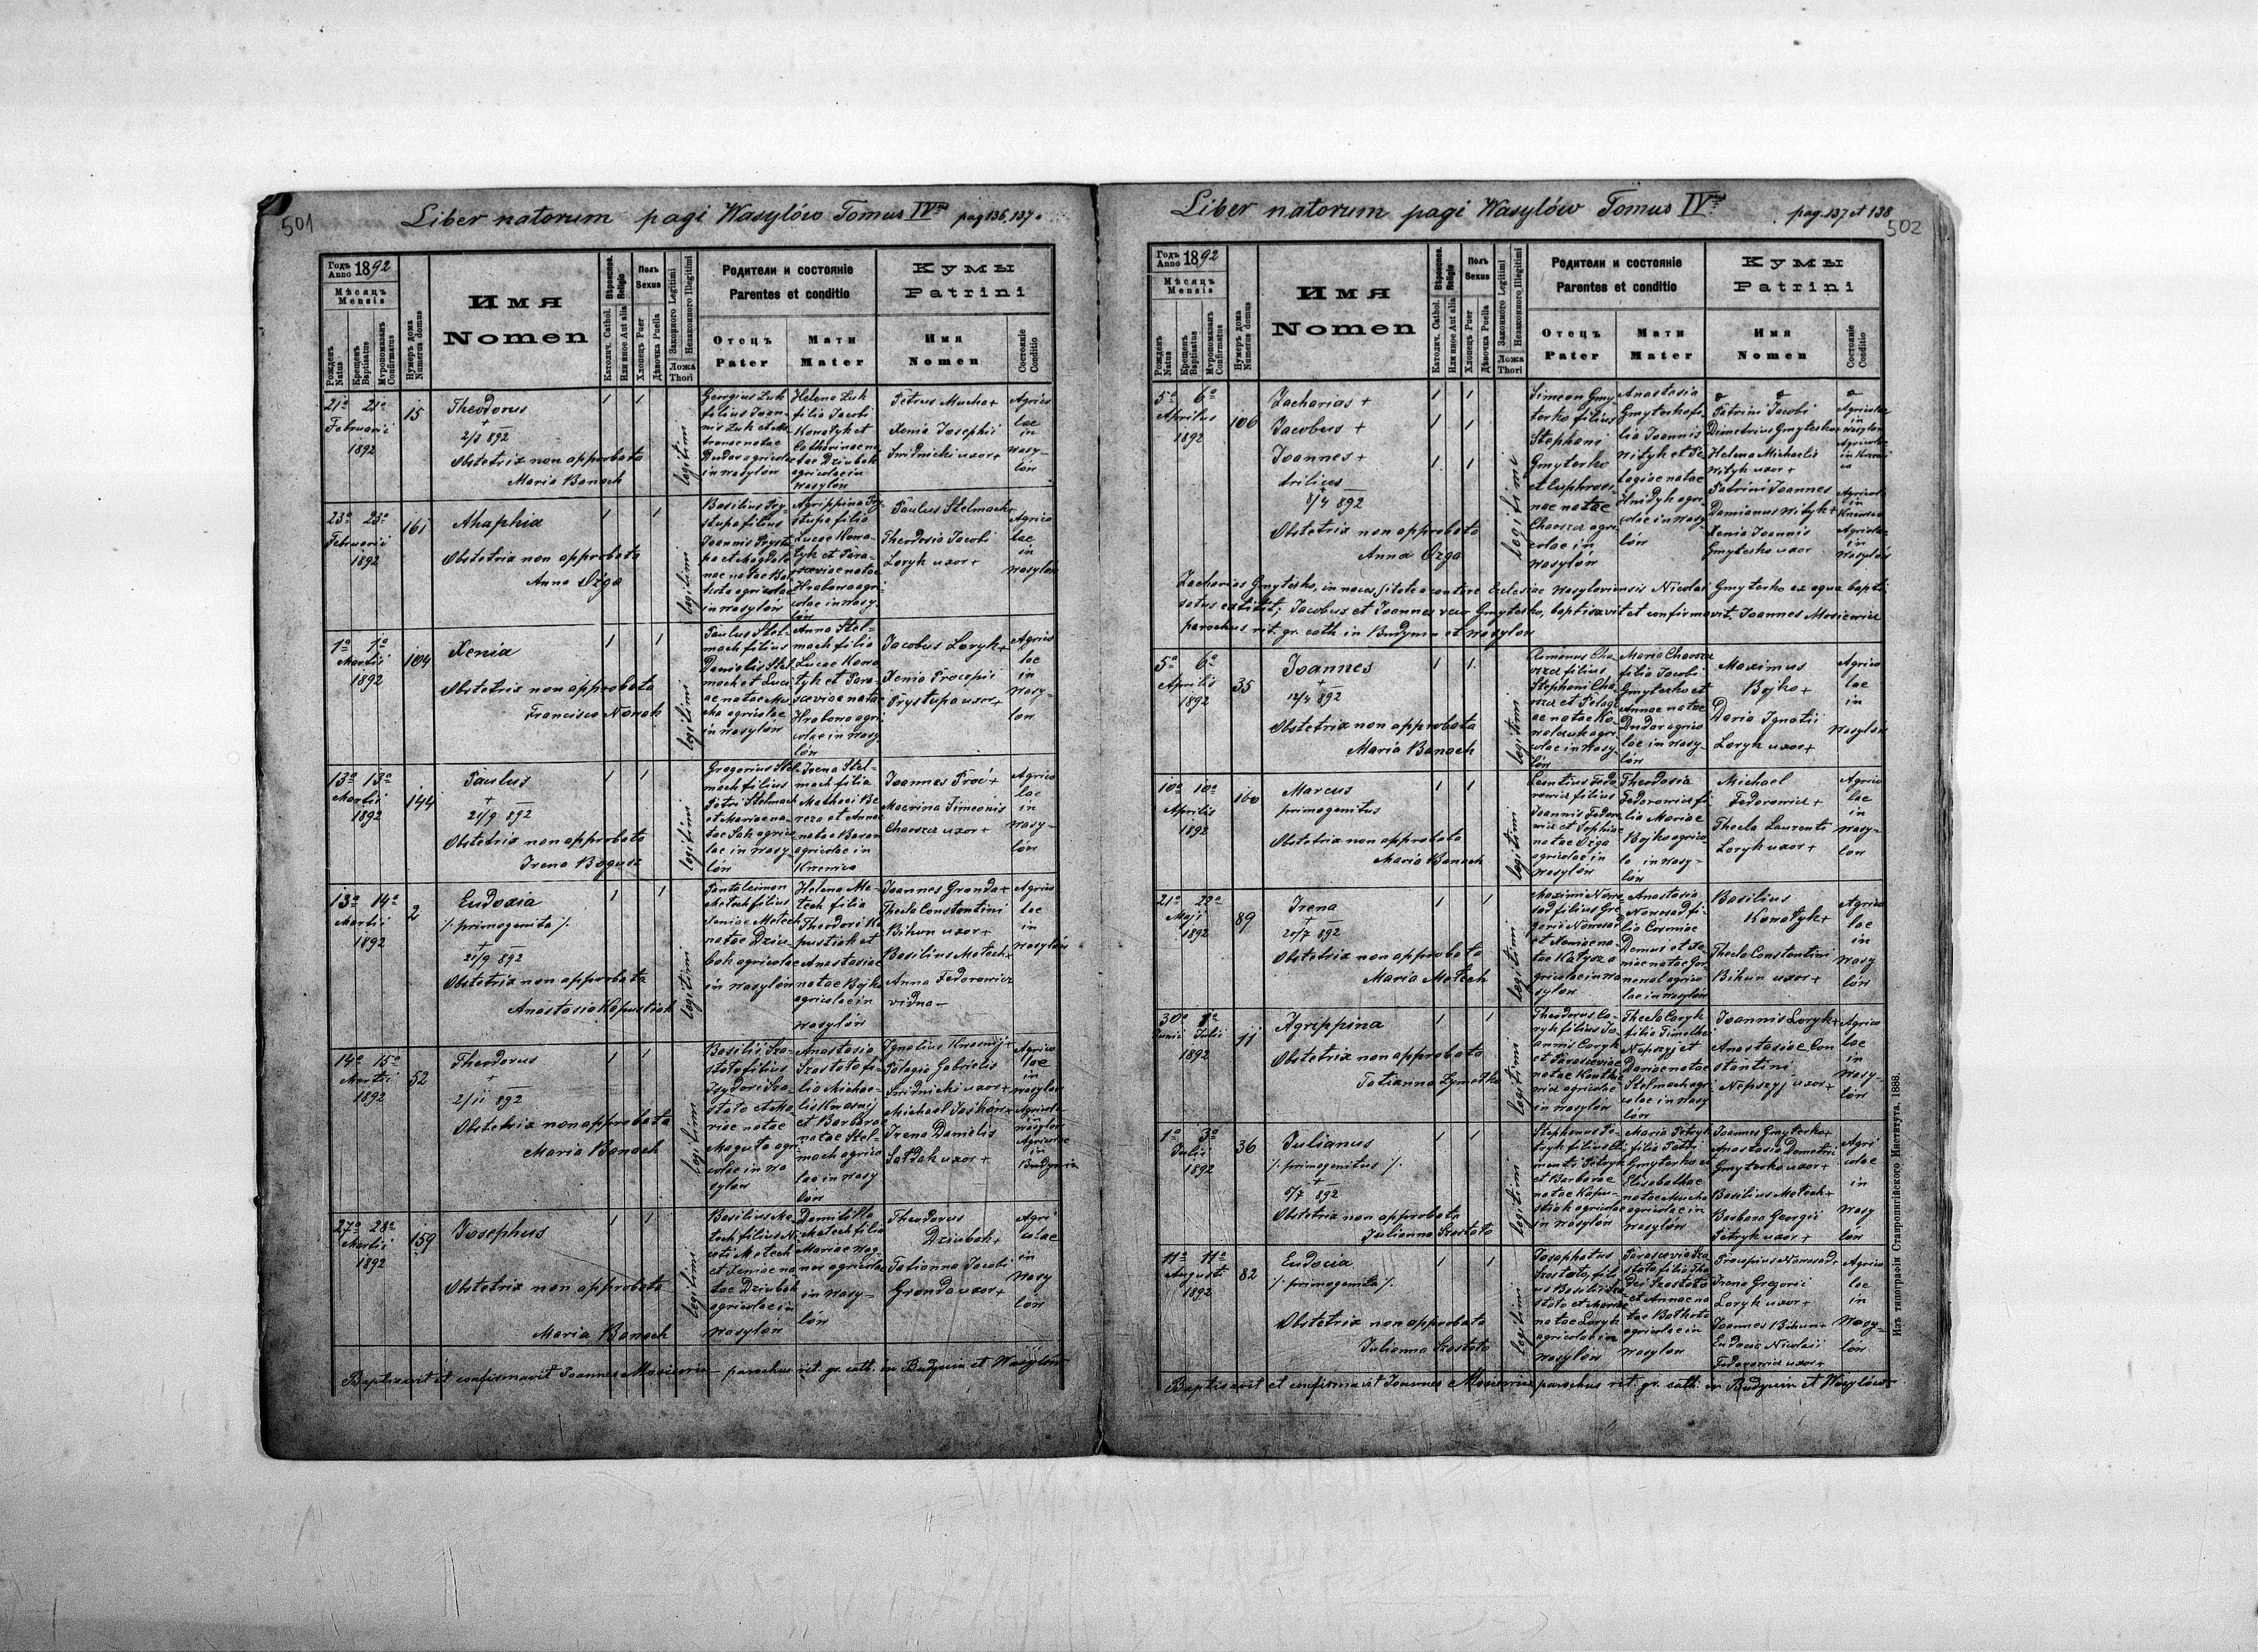 501
Liber natorum pagi Wasylów Tomus IVus pag 136, 137.
Годъ Anno 1892
Мѣсяцъ Mensis
Рожденъ Natus
Крещенъ Baptisatus
Муропомазанъ Confirmatus
Нумеръ дома Numerus domus
Имя
Nomen
Вѣроиспов. Religio
Католич. Cathol.
Или иное Aut alia
Полъ Sexus
Хлопецъ Puer
Дѣвочка Puella
Законного Legitimi
Незаконного Illegitimi
Ложа Thori
Родители и состояніе
Parentes et conditio
Отецъ
Pater
Мати
Mater
Кумы
Patrini
Имя
Nomen
Состояніе Conditio
21a 21a
Februarii
1892
15
Theodorus
+
2/3 892
Obstetrix non approbata
Maria Banach
legitimi
Georgius Luk
filius Joan-
nis Luk et Ma
tronae natae
Dudar agricolae
in Wasylów
Helena Luk
filia Jacobi
Kowatyk et
Catharinae na
tae Dziubak
agricolae in
Wasylów
Petrus Mucha +
Xenia Josephi
Smidnicki uxor +
Agrico
lae
in
Wasy-
lów
23a 23a
Februarii
1892
161
Ahaphia
Obstetrix non approbata
Anna Ozga
legitimi
Basilius Pry-
stupa filius
Joannis Prystu
pa et Magdale
nae natae
agricolae
in Wasylów
Agrippina Pry-
stupa filia
Lucae Kowa-
tyk et Para-
sceviae natae
Hrabowa agri-
colae in Wasy
lów
Paulus Stelmach +
Theodosia Jacobi
Loryk uxor +
Agrico
lae
in
Wasylów
1a 1a
Martii
1892
104
Xenia
Obstetrix non approbata
Francisca Nowak
legitimi
Paulus Stel-
mach filius
Danielis Stel
mach et Luci-
ae natae Mu
cha agricolae
in Wasylów
Anna Stel-
mach filia
Lucae Kowa
tyk et Para-
sceviae natae
Hrabowa agri
colae in Wasy
lów
Jacobus Loryk +
Xenia Procopii
Prystupa uxor +
Agrico
lae
in
Wasy-
lów
13a 13a
Martii
1892
144
Paulus
+
21/9 892
Obstetrix non approbata
Irena Bogusz
legitimi
Gregorius Stel-
mach filius
Petri Stelmach
et Mariae na-
tae Sak agrico
lae in Wasy-
lów
Irena Stel-
mach filia
Mathei Be
reza et Annae
natae Baran
agricolae in
Krzewica
Joannes Proć +
Macrina Simeonis
Chaosza uxor +
Agrico
lae
in
Wasy-
lów
13a 14a
Martii
1892
2
Eudoxia
/: primogenita /:
+
21/9 892
Obstetrix non approbata
Anastasia Kapustiak
legitimi
Pantaleimon
Metech filius
Xeniae Metech
natae Dziu-
bak agricolae
in Wasylów
Helena Me-
tech filia
Theodori Ka
pustiak et
Anastasiae
natae Bojko
agricolae in
Wasylów
Joannes Granda +
Thecla Constantini
Bihun uxor +
Basilius Metech +
Anna Fedorowicz
vidua -
Agrico
lae
in
Wasylów
14a 15a
Martii
1892
52
Theodorus
+
2/11 892
Obstetrix non approbata
Maria Banach
legitimi
Basilii Szo-
stoto filius
Isydori Szo
stoto et Ma-
riae natae
Maguta agri
colae in Wa
sylów
Anastasia
Szostoto fi-
lia Michae-
lis Kwasnij
et Barbarae
natae Stel-
mach agrico
lae in Wasy
lów
Ignatius Kwasnij +
Pelagia Gabrielis
Smidnicki uxor +
Michael Jaśków +
Irena Danielis
Sałdak uxor +
Agrico
lae
in
Wasylów
Agricola
in
Wasylów
Agricolae
in
Budynin
27a 28a
Martii
1892
159
Josephus
Obstetrix non approbata
Maria Banach
legitimi
Basilius Me-
tech filius Ni
ceti Metech
et Xeniae na
tae Dziubak
agricolae in
Wasylów
Domitilla
Metech filia
Mariae Wag-
ner agricolae
in Wasy-
lów
Theodorus
Dziubak +
Tatianna Jacobi
Granda uxor +
Agri
colae
in
Wasy
lów
Baptisavit et confirmavit Joannes Mosiewicz parochus rit. gr. cath. in Budynin et Wasylów
Liber natorum pagi Wasylów Tomus IVus pag. 137 et 138
502
Годъ Anno 1892
Мѣсяцъ Mensis
Рожденъ Natus
Крещенъ Baptisatus
Муропомазанъ Confirmatus
Нумеръ дома Numerus domus
Имя
Nomen
Вѣроиспов. Religio
Католич. Cathol.
Или иное Aut alia
Полъ Sexus
Хлопецъ Puer
Дѣвочка Puella
Законного Legitimi
Незаконного Illegitimi
Ложа Thori
Родители и состояніе
Parentes et conditio
Отецъ
Pater
Мати
Mater
Кумы
Patrini
Имя
Nomen
Состояніе Conditio
5a 6a
Aprilis
1892
106
Zacharias +
Jacobus +
Joannes +
trilices
8/4 892
Obstetrix non approbata
Anna Ozga
legitimi
Simeon Gmy-
terko filius
Stephani
Gmyterko
et Euphrosi-
nae natae
Chaosza agri
colae in
Wasylów
Anastasia
Gmyterko fi-
lia Joannis
Wityk et Pe
lagiae natae
Hnidyk agri-
colae in Wasy-
lów
Patrini Jacobi
Demetrius Gmyterko +
Helena Michaelis
Wityk uxor +
Patrini Joannes
Damianus Wityk +
Xenia Joannis
Gmyterko uxor
Agricola
in
Wasylów
Agricola
Agricola
in
Krzewica
Agricola
in
Wasylów
Zacharias Gmyterko, in necessitate a cantore Ecclesiae Wasyloviensis Nicolai Gmyterko ex aqua bapti-
satus extitit; Jacobus et Joannes vero Gmyterko, baptisavit et confirmavit Joannes Mosiewicz
parochus rit. gr. cath in Budynin et Wasylów
5a 6a
Aprilis
1892
35
Joannes
+
12/4 892
Obstetrix non approbata
Maria Banach
legitimi
Romanus Cha-
osza filius
Stephani Cha-
osza et Pelagi
ae natae Ko-
walczuk agri-
colae in Wasy-
lów
Maria Chaosza
filia Jacobi
Gmyterko et
Annae natae
Dudar agrico
lae in Wasy-
lów
Maximus
Bojko +
Daria Ignatii
Loryk uxor +
Agrico
lae
in
Wasylów
10a 10a
Aprilis
1892
160
Marcus
primogenitus
Obstetrix non approbata
Maria Banach
legitimi
Leontius Fedo
rowicz filius
Joannis Fedoro
wicz et Sophiae
natae Ozga
agricolae in
Wasylów
Theodosia
Fedorowicz fi
lia Mariae
Bojko agrico
la in Wasy-
lów
Michael
Fedorowicz +
Thecla Laurenti
Loryk uxor +
Agrico
lae
in
Wasy-
lów
21a 22a
Maji
1892
89
Irena
+
20/7 892
Obstetrix non approbata
Maria Metech
legitimi
Maximi Nowo
sad filius Gre
gorii Nowosad
et Xeniae na-
tae Katysza
agricolae in Wa
sylów
Anastasia
Nowosad fi-
lia Cosmiae
Demus et Xe-
niae natae
agrico-
lae in Wasylów
Basilius
Kowatyk +
Thecla Constantini
Bihun uxor +
Agrico
lae
in
Wasy
lów
30a 1a
Junii Julii
1892
11
Agrippina
Obstetrix non approbata
Tatianna
legitimi
Theodorus Lo-
ryk filius Jo
annis Loryk
et Parasceviae
natae
agricolae
in Wasylów
Thecla Loryk
filia Timothei
Nepszyj et
Dariae natae
Stelmach agri
colae in Wasy
lów
Joannis Loryk +
Anastasiae Con
stantini
Nepszyj uxor +
Agrico
lae
in
Wasy-
lów
1a 3a
Julii
1892
36
Julianus
/: primogenitus /:
+
5/7 892
Obstetrix non approbata
Julianna Szostoto
legitimi
Stephanus Pe-
tryk filius Cle
menti Petryk
et Barbarae
natae Kapu-
stiak agricolae
in Wasylów
Maria Petryk
filia Petri
Gmyterko et
Elisabethae
natae Mucha
agricolae in
Wasylów
Joannes Gmyterko +
Anastasia Demetri
Gmyterko uxor +
Basilius Metech +
Barbara Georgii
Petryk uxor +
Agri
colae
in
Wasy
lów
11a 11a
Augusti
1892
82
Eudocia
/: primogenita /:
Obstetrix non approbata
Julianna Szostoto
legitimi
Josaphatus
Szostoto, fili
us Basilii Szo
stoto et Mariae
natae Loryk
agricolae in
Wasylów
Parascevia Szo
stoto filia Tha
dei Szostoto
et Annae na
tae Bothota
agricolae in
Wasylów
Procopius Nowosad +
Irena Gregorii
Loryk uxor +
Joannes Bihun +
Eudocia Nicolaii
Fedorowicz uxor +
Agrico
lae
in
Wasy-
lów
Baptisavit et confirmavit Joannes Mosiewicz parochus rit. gr. cath. in Budynin et Wasylów
Изъ типографіи Ставропигійского Института, 1888.